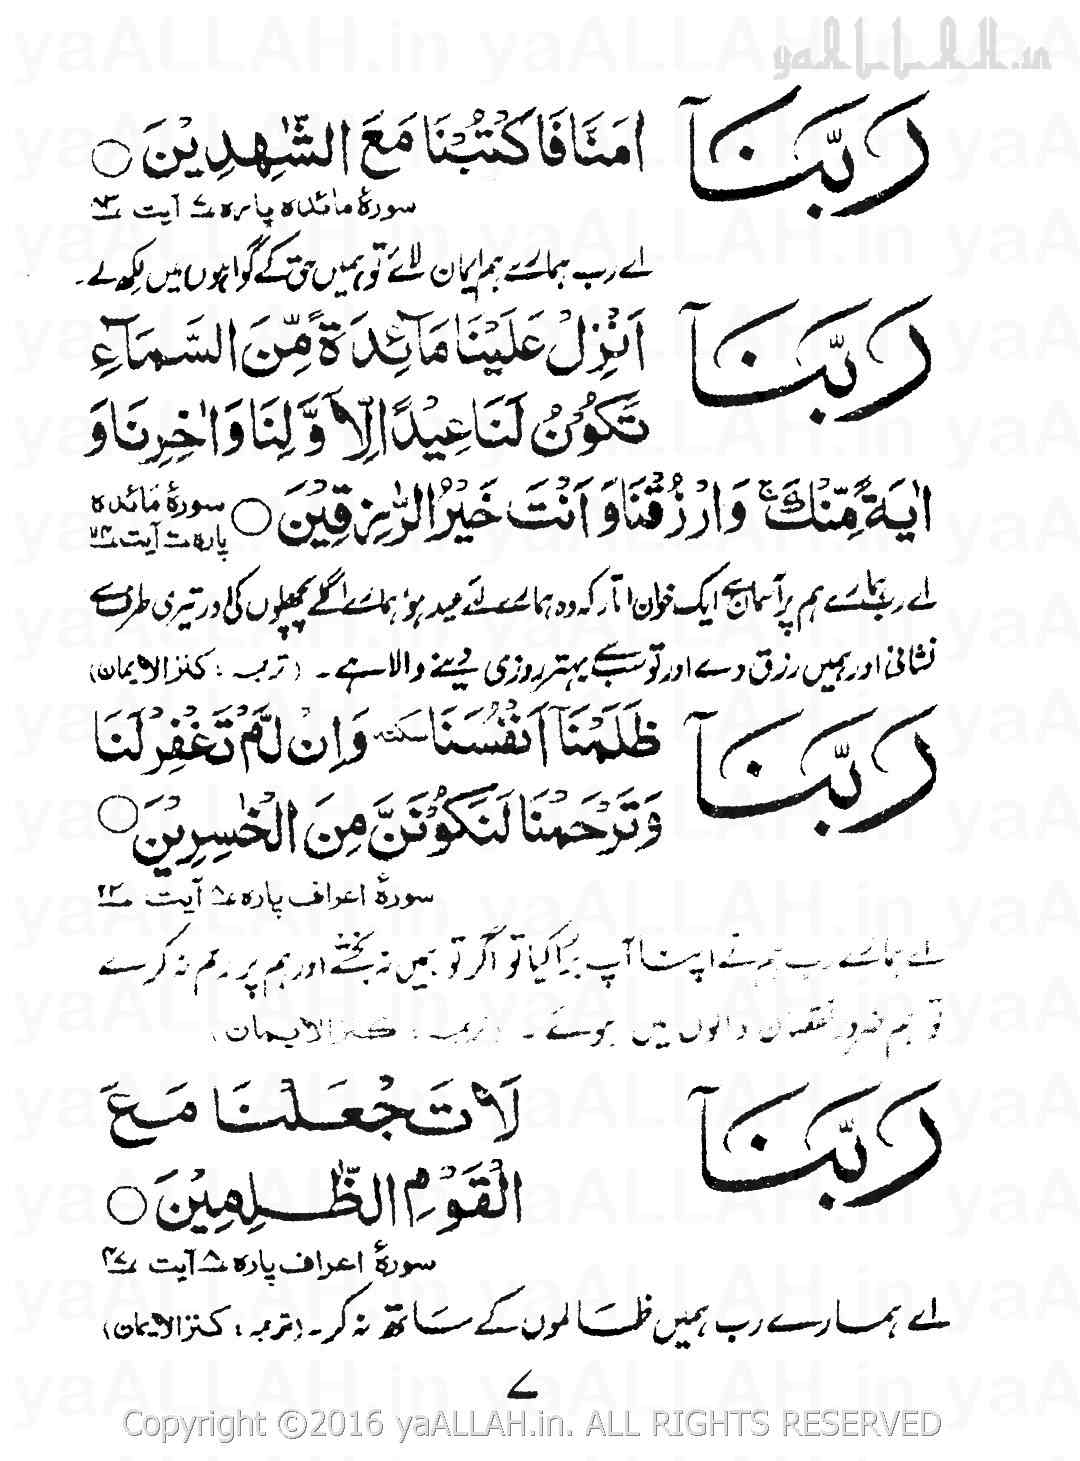 yaALLAH.in
رَبَّنَآ اٰمَنَّا فَاكْتُبْنَا مَعَ الشّٰهِدِيْنَ ○
سورۂ مائدہ پارہ ۷ آیت ۸۳
اے رب ہمارے ہم ایمان لائے تو ہمیں حق کے گواہوں میں لکھ لے۔
رَبَّنَآ اَنْزِلْ عَلَيْنَا مَآئِدَةً مِّنَ السَّمَآءِ
تَكُوْنُ لَنَا عِيْدًا لِّاَوَّلِنَا وَاٰخِرِنَا وَ
اٰيَةً مِّنْكَ ۚ وَارْزُقْنَا وَاَنْتَ خَيْرُ الرّٰزِقِيْنَ ○ سورۂ مائدہ
پارہ ۷ آیت
اے رب ہمارے ہم پر آسمان سے ایک خوان اتار کہ وہ ہمارے لئے عید ہو ہمارے اگلے پچھلوں کی اور تیری طرف سے
نشانی اور ہمیں رزق دے اور تو سب سے بہتر روزی دینے والا ہے ۔ (ترجمہ : کنز الایمان)
رَبَّنَا ظَلَمْنَآ اَنْفُسَنَا سكتہ وَاِنْ لَّمْ تَغْفِرْ لَنَا
وَتَرْحَمْنَا لَنَكُوْنَنَّ مِنَ الْخٰسِرِيْنَ ○
سورۂ اعراف پارہ ۸ آیت ۲۳
اے ہمارے رب ہم نے اپنا آپ برا کیا تو اگر تو ہمیں نہ بخشے اور ہم پر رحم نہ کرے
تو ہم ضرور نقصان والوں میں ہوئے ۔ (ترجمہ : کنز الایمان)
رَبَّنَا لَا تَجْعَلْنَا مَعَ
الْقَوْمِ الظّٰلِمِيْنَ ○
سورۂ اعراف پارہ ۸ آیت ۴۷
اے ہمارے رب ہمیں ظالموں کے ساتھ نہ کر۔ (ترجمہ : کنز الایمان)
۷
Copyright ©2016 yaALLAH.in. ALL RIGHTS RESERVED